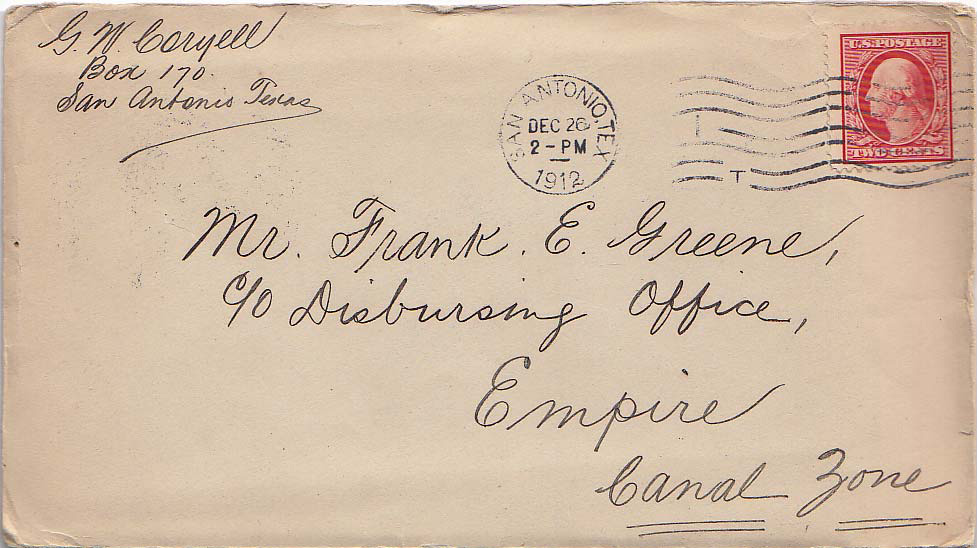 G. W. Coryell
Box 170.
San Antonio Texas
SAN ANTONIO, TEX
DEC 26
2 - PM
1912
T
U.S. POSTAGE
TWO CENTS
Mr. Frank. E. Greene,
c/o Disbursing Office,
Empire
Canal Zone